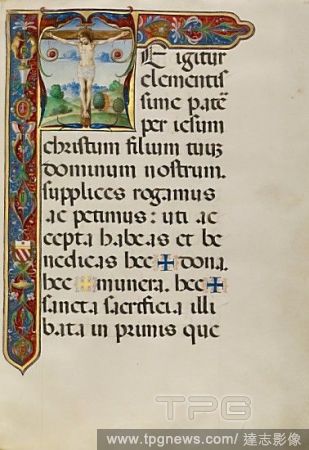 E igitur
clementis
sime patē
per iesum
christum filium tuuz
dominum nostrum.
supplices rogamus
ac petimus: uti ac
cepta habeas et be
nedicas hec ✠ dona.
hec ✠ munera. hec ✠
sancta sacrificia illi
bata in primis que
TPG
www.tpgnews.com/ 達志影像